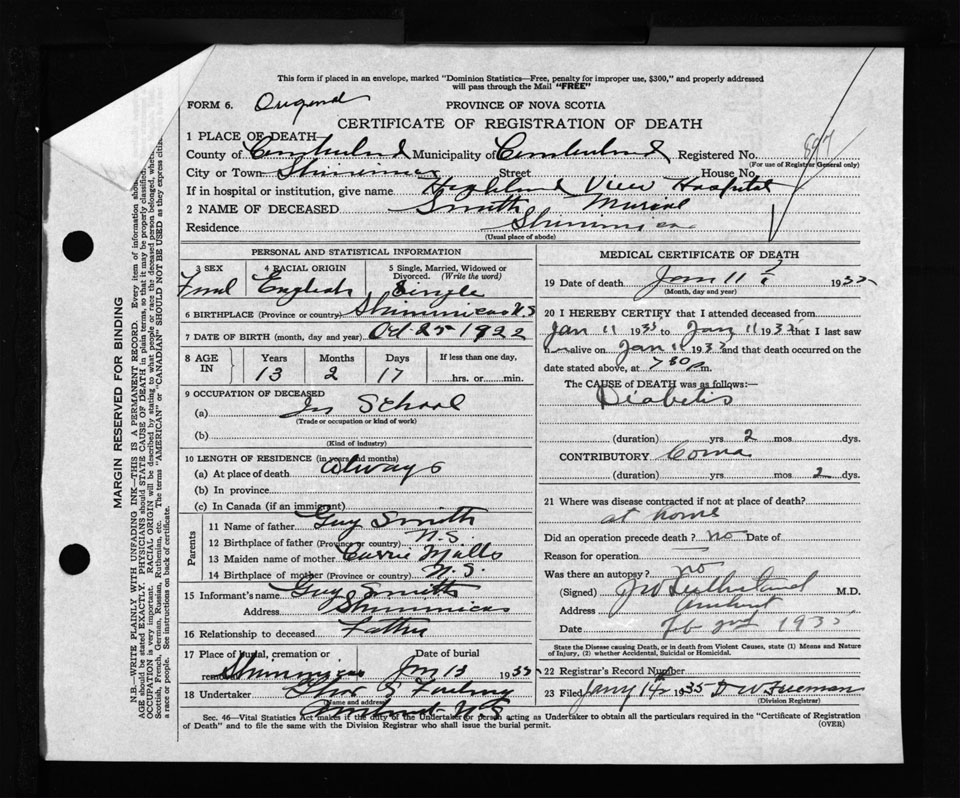 This form if placed in an envelope, marked "Dominion Statistics—Free, penalty for improper use, $300," and properly addressed
will pass through the Mail "FREE"
FORM 6.
PROVINCE OF NOVA SCOTIA
CERTIFICATE OF REGISTRATION OF DEATH
897
1 PLACE OF DEATH—
County of Cumberland Municipality of Cumberland Registered No.
(For use of Registrar General only)
City or Town Shinimicas Street House No.
If in hospital or institution, give name Highland View Hospital
2 NAME OF DECEASED Smith
Residence Shinimicas
(Usual place of abode)
PERSONAL AND STATISTICAL INFORMATION
3 SEX 4 RACIAL ORIGIN 5 Single, Married, Widowed or
Divorced. (Write the word)
English Single
6 BIRTHPLACE (Province or country) Shinimicas N.S
7 DATE OF BIRTH (month, day and year) Oct 25 1922
8 AGE IN Years Months Days If less than one day,
13 2 17 hrs. or min.
9 OCCUPATION OF DECEASED
(a) In School
(Trade or occupation or kind of work)
(b)
(Kind of industry)
10 LENGTH OF RESIDENCE (in years and months)
(a) At place of death Always
(b) In province
(c) In Canada (if an immigrant)
Parents
11 Name of father Guy Smith
12 Birthplace of father (Province or country) N.S.
13 Maiden name of mother Carrie Mills
14 Birthplace of mother (Province or country) N.S.
15 Informant's name Guy Smith
Address Shinimicas
16 Relationship to deceased Father
17 Place of burial, cremation or removal Date of burial
Shinimicas Jan 13 1935
18 Undertaker
(Name and address)
Amherst N.S
MEDICAL CERTIFICATE OF DEATH
19 Date of death Jan 11 1935
(Month, day and year)
20 I HEREBY CERTIFY that I attended deceased from
Jan 11 1935 to Jan 11 1935 that I last saw
h alive on Jan 11 1935 and that death occurred on the
date stated above, at 7 30 p m.
The CAUSE of DEATH was as follows:—
Diabetis
(duration) yrs. 2 mos. dys.
CONTRIBUTORY Coma
(duration) yrs. mos. 2 dys.
21 Where was disease contracted if not at place of death?
at home
Did an operation precede death? no Date of
Reason for operation
Was there an autopsy? no
(Signed) J W Sutherland M.D.
Address Amherst
Date Feb 2nd 1935
State the Disease causing Death, or in death from Violent Causes, state (1) Means and Nature
of Injury, (2) whether Accidental, Suicidal or Homicidal.
22 Registrar's Record Number
23 Filed Jany 14 1935 D W Freeman
(Division Registrar)
Sec. 46—Vital Statistics Act makes it the duty of the Undertaker or person acting as Undertaker to obtain all the particulars required in the "Certificate of Registration
of Death" and to file the same with the Division Registrar who shall issue the burial permit.
(OVER)
MARGIN RESERVED FOR BINDING
N.B.—WRITE PLAINLY WITH UNFADING INK—THIS IS A PERMANENT RECORD. Every item of information
AGE should be stated EXACTLY. PHYSICIANS should STATE CAUSE OF DEATH in plain terms, so that it may be properly classified.
OCCUPATION is very important. RACIAL ORIGIN will be described by stating to what people or race the deceased person belonged,
Scottish, French, German, Russian, Ruthenian, etc. The terms "AMERICAN" or "CANADIAN" SHOULD NOT BE USED as they express
a race or people. See instructions on back of certificate.